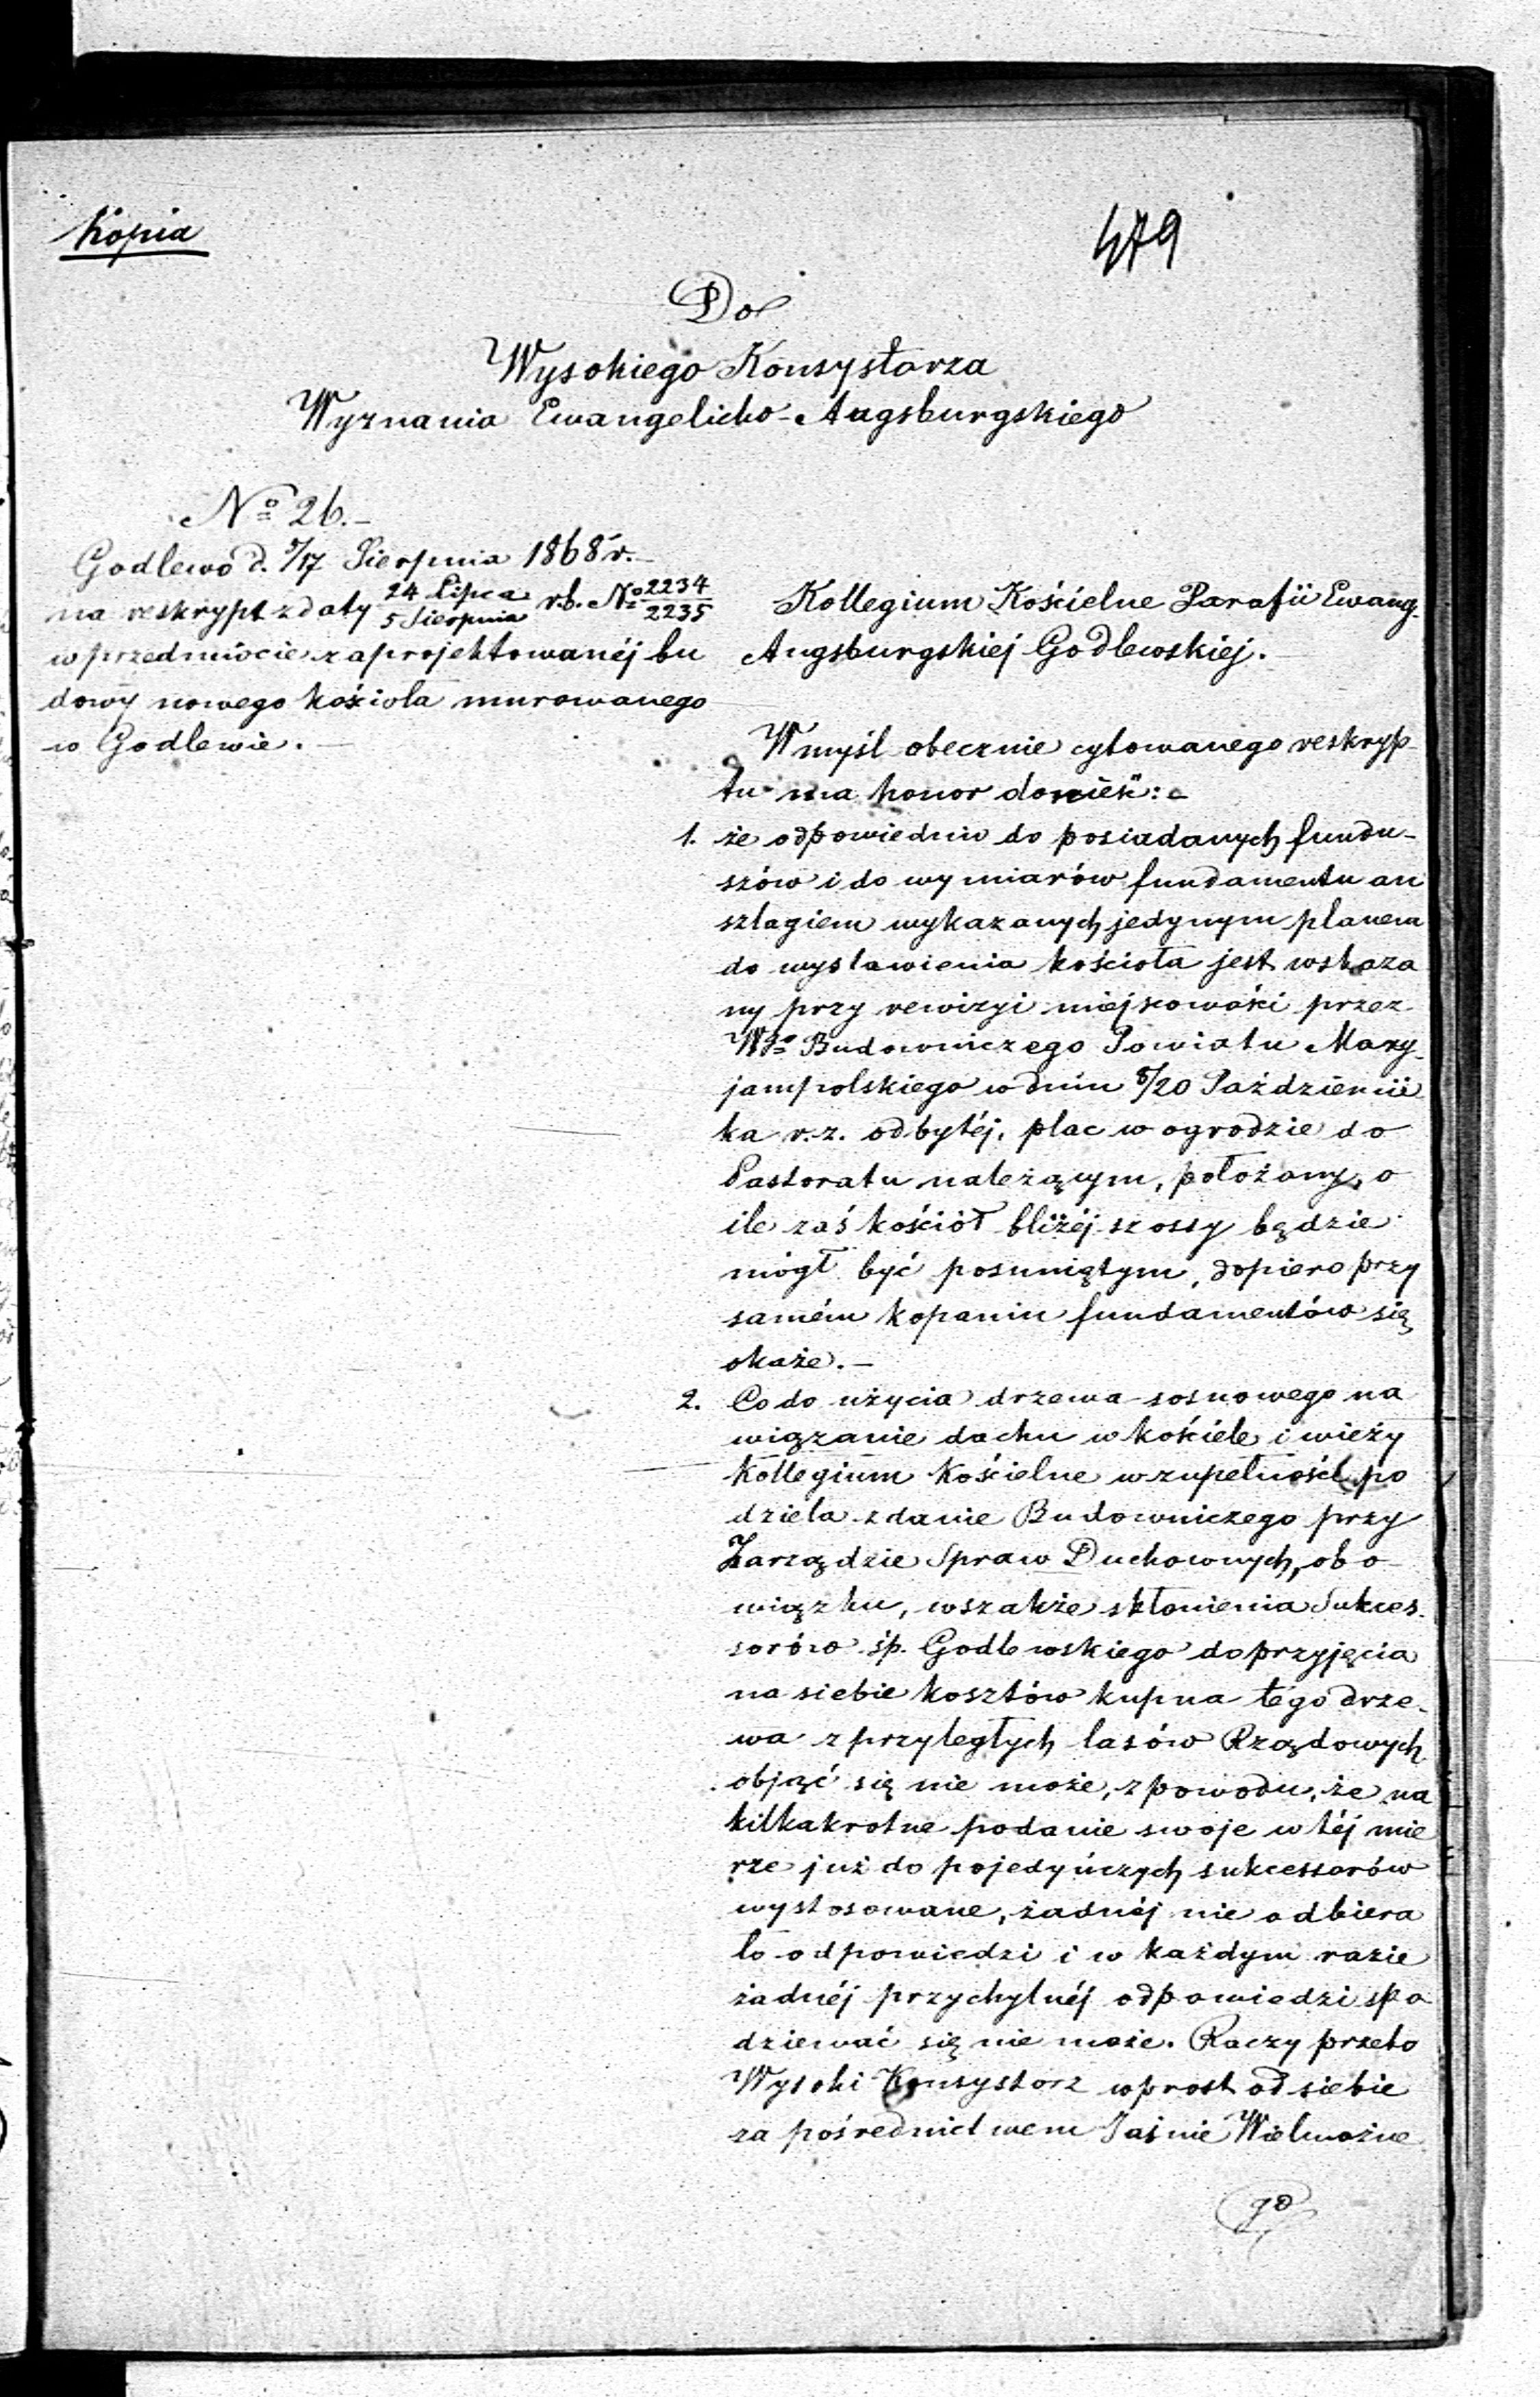 Kopia
479
Do
Wysokiego Konsystorza
Wyznania Ewangelicko-Augsburgskiego
No 26.-
Godlewo d. 5/17 Sierpnia 1868 r.-
na reskrypt z daty 24 Lipca / 5 Sierpnia r.b. No 2234 / 2235
w przedmiocie zaprojektowanéj bu
dowy nowego kościoła murowanego
w Godlewie.-
Kollegium Kościelne Parafii Ewang.
Augsburgskiej Godlewskiej.
W myśl obecznie cytowanego reskryp-
tu ma honor donieść:
1. że odpowiednio do posiadanych fundu-
szów i do wymiarów fundamentu an
szlagiem wykazanych jedynym placem
do wystawienia kościoła jest wskaza
ny przy rewizyi miejscowości przez
Wgo Budowniczego Powiatu Mary-
jampolskiego w dniu 8/20 Październi
ka r.z. odbytéj, plac w ogrodzie do
Pastoratu należącym, położony, o
ile zaś kościół bliżéj szossy będzie
mógł być posuniętym, dopiero przy
samém kopaniu fundamentów się
okaże.-
2. Co do użycia drzewa sosnowego na
wiązanie dachu w kościele i wieży
Kollegium Kościelne w zupełności po
dziela zdanie Budowniczego przy
Zarządzie Spraw Duchownych, obo-
wiązku, wszakże skłonienia Sukces-
sorów śp. Godlewskiego do przyjęcia
na siebie kosztów kupna tego drze-
wa z przyległych lasów Rządowych
objąć się nie może, z powodu, że na
kilkakrotne podanie swoje w téj mie
rze już do pojedyńczych sukcessorów
wystosowane, żadnéj nie odbiera
ło odpowiedzi i w każdym razie
żadnéj przychylnéj odpowiedzi spo
dziewać się nie może. Raczy przeto
Wysoki Konsystorz wprost od siebie
za pośrednictwem Jaśnie Wielmożne
go